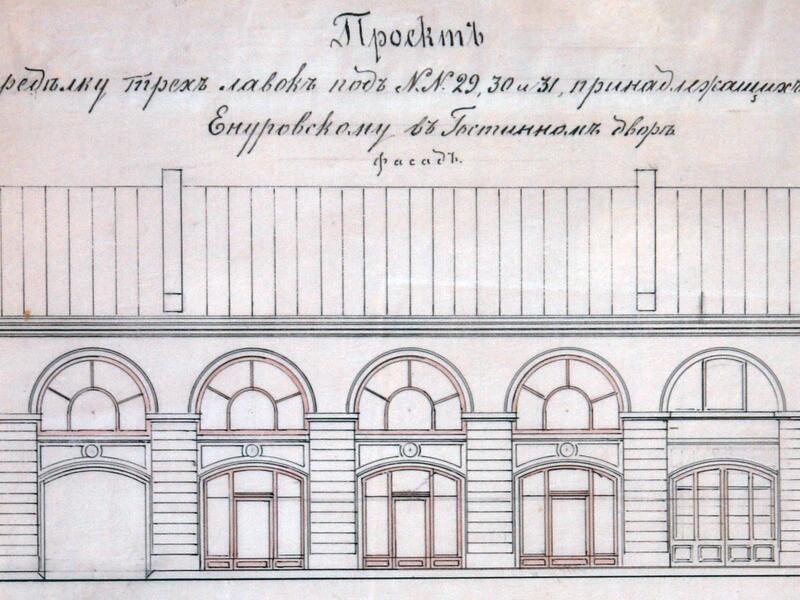 Проектъ
редѣлку трехъ лавокъ подъ №№ 29, 30 и 31, принадлежащихъ
Енуровскому въ Гостинномъ дворѣ
фасадъ.